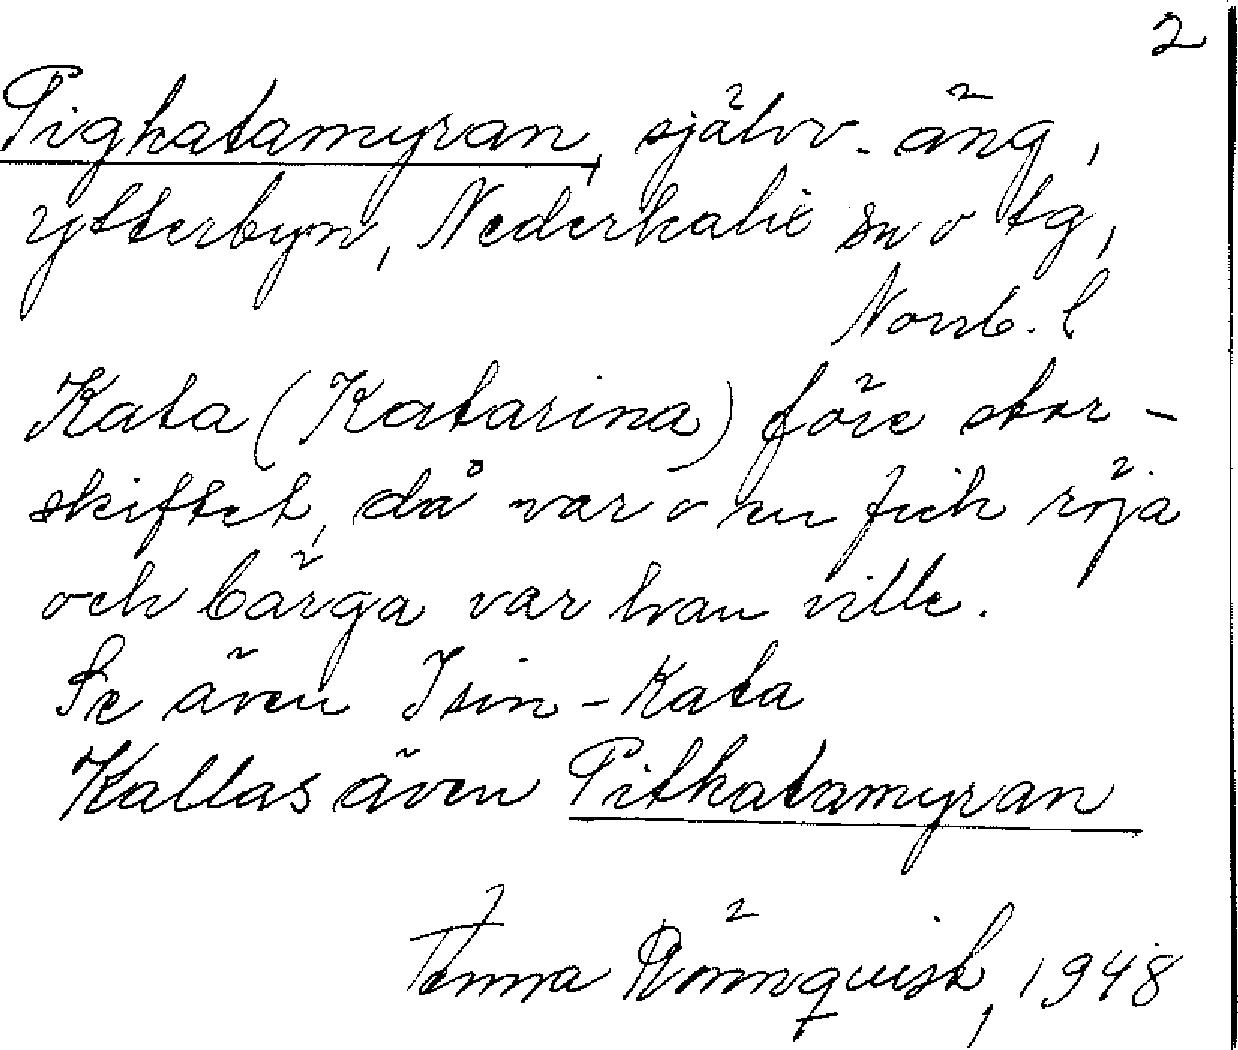 2
Pigkatamyran, självv. äng,
Ytterbyn, Nederkalix sn o tg,
Norrb. l
Kata (Katarina) före stor-
skiftet, då var o en fick röja
och bärga var han ville.
Se även Isin-Kata
Kallas även Pitkatamyran
Temma Rönnquist, 1948